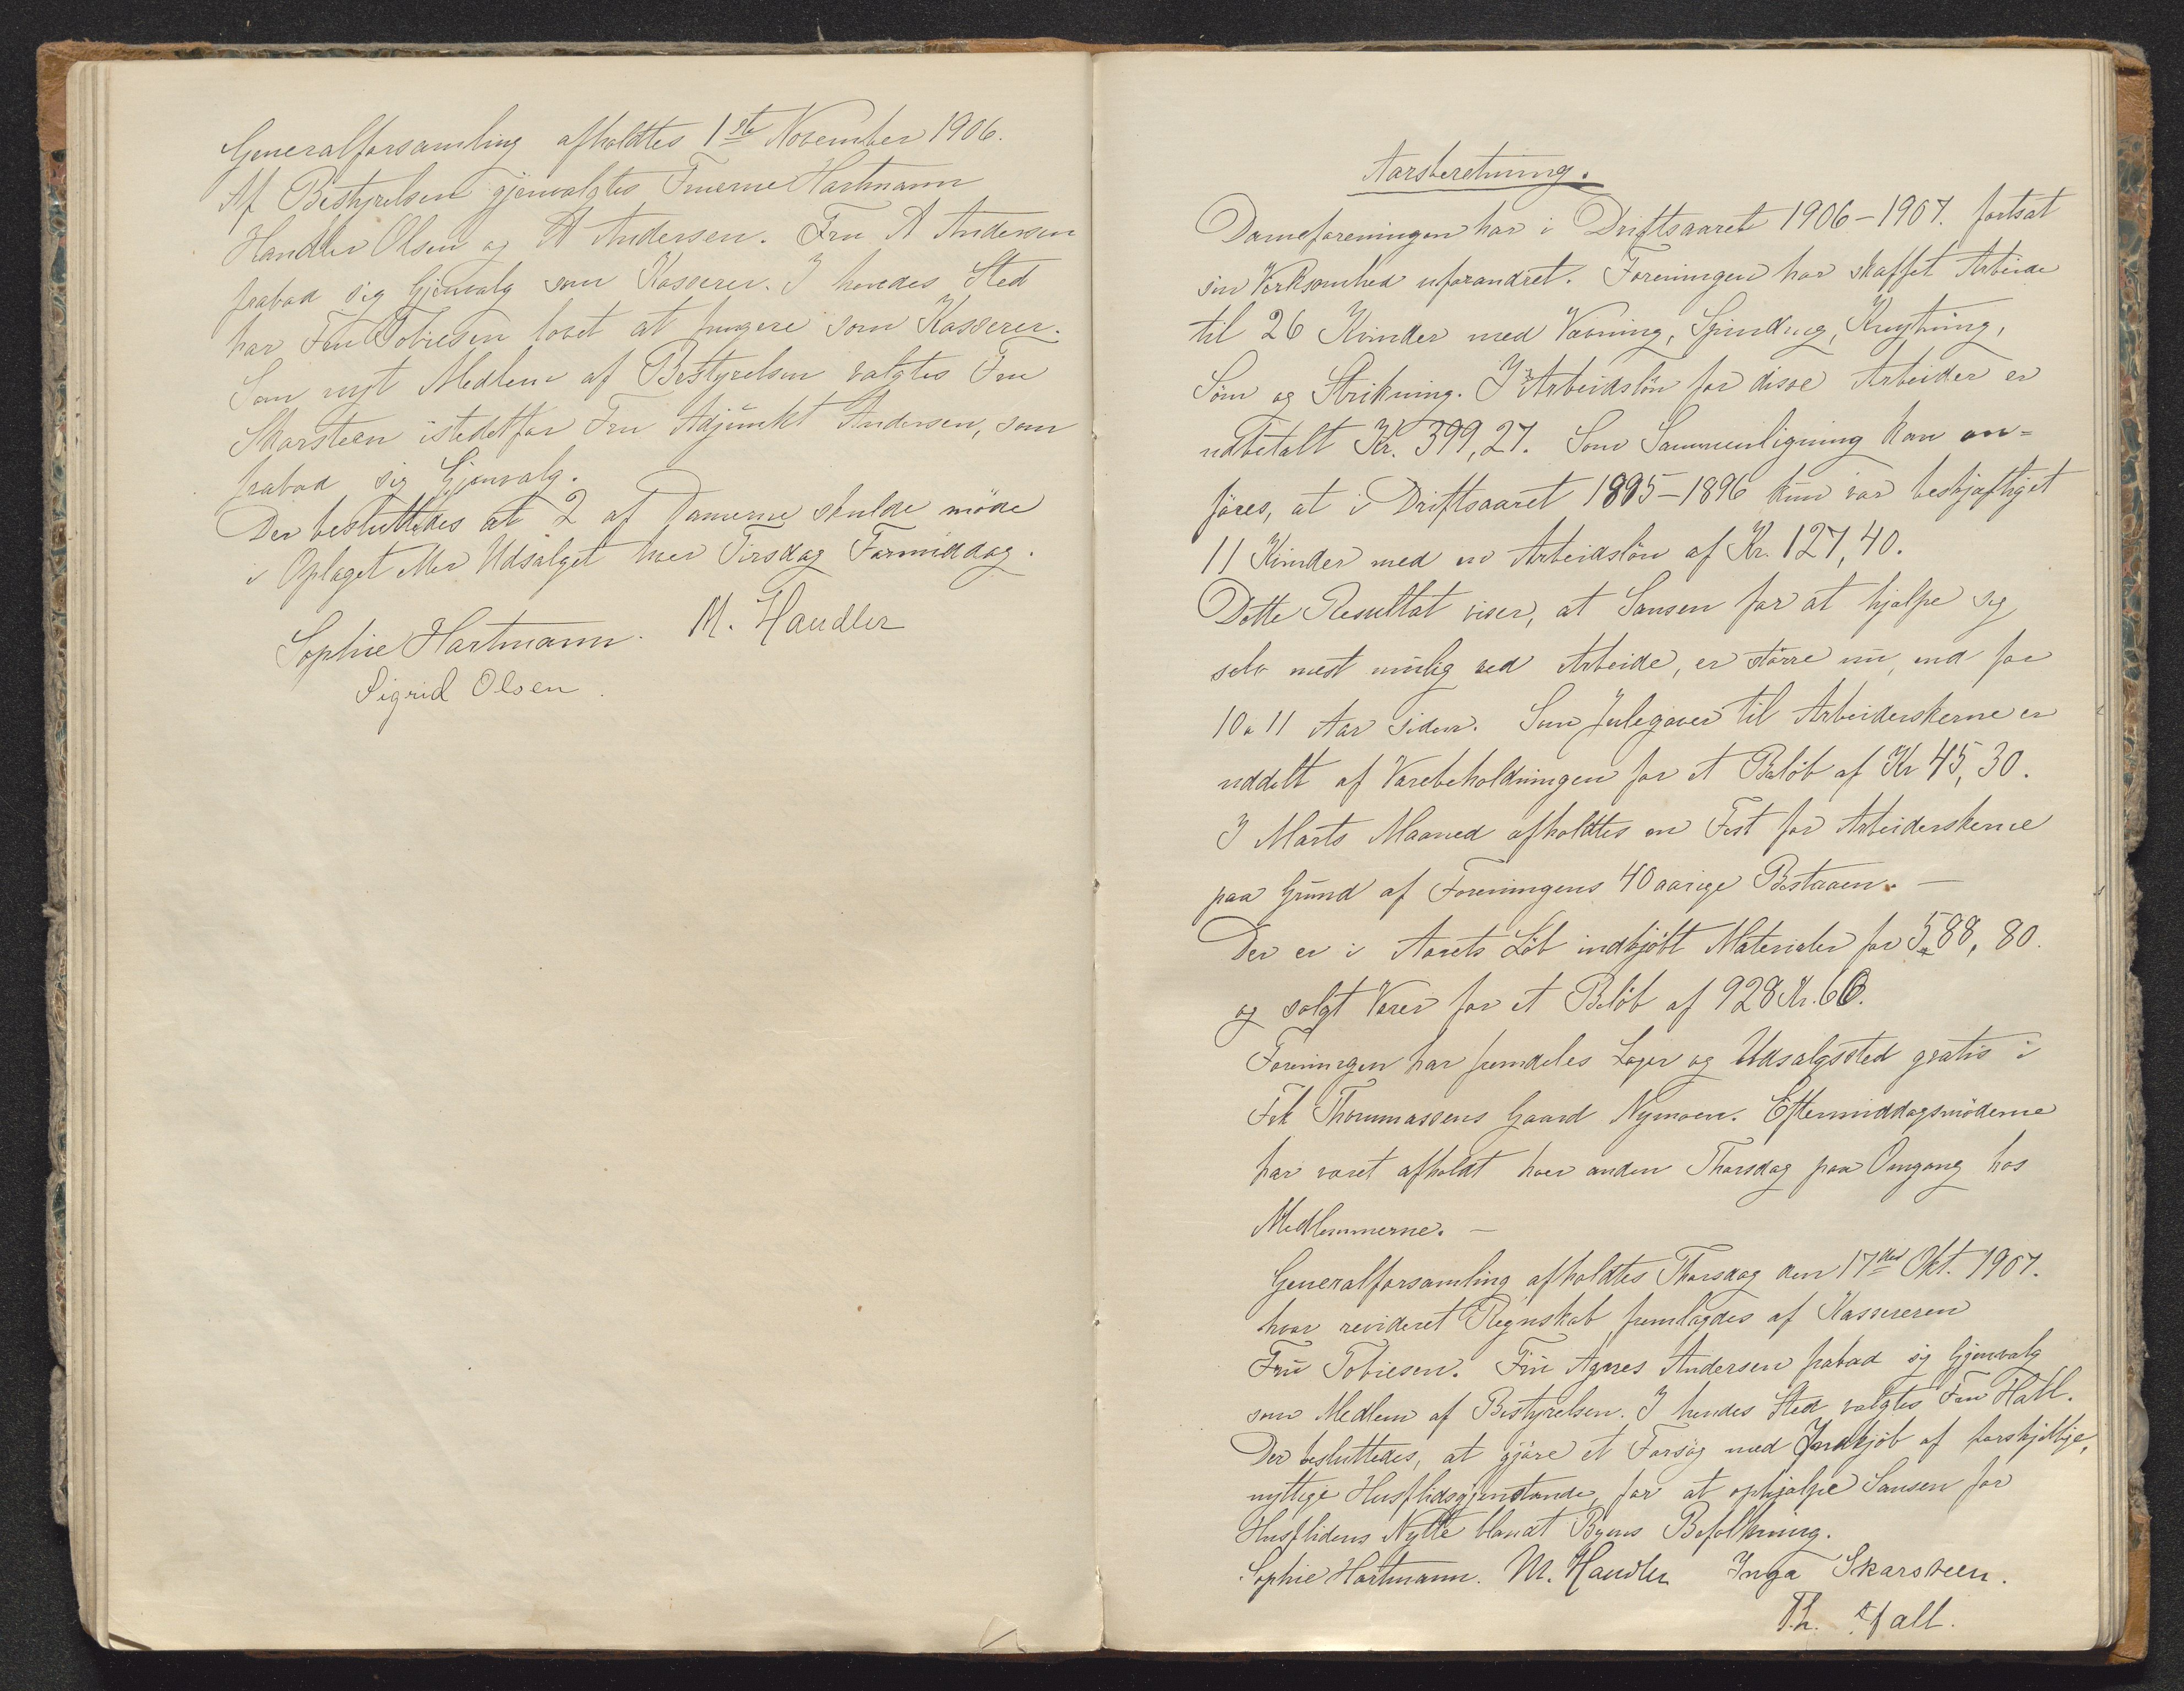 Generalforsamling afholdtes 1ste November 1906.
Af Bestyrelsen gjenvalgtes Fruerne Hartmann
Handler Olsen og A Andersen. Fru A Andersen
frabad sig Gjenvalg som Kasserer. I hendes Sted
har Fru Tobiesen lovet at fungere som Kasserer.
Som nyt Medlem af Bestyrelsen valgtes Fru
Skarsteen istedetfor Fru Adjunkt Andersen, som
frabad sig Gjenvalg.
Der besluttedes at 2 af Damerne skulde møde
i Oplaget eller Udsalget hver Tirsdag Formiddag.
Sophie Hartmann. M. Handler
Sigrid Olsen.
Aarsberetning.
Dameforeningen har i Driftsaaret 1906-1907. fortsat
sin Virksomhed uforandret. Foreningen har skaffet Arbeide
til 26 Kvinder med Vævning, Spinding, Knytning,
Søm og Strikning. I Arbeidsløn for disse Arbeider er
udbetalt Kr. 399,27. Som Sammenligning kan an=
føres, at i Driftsaaret 1895-1896 kun var beskjæftiget
11 Kvinder med en Arbeidsløn af Kr. 127,40.
Dette Resultat viser, at Sansen for at hjælpe sig
selv mest mulig ved Arbeide, er større nu, end for
10 a 11 Aar siden. Som Julegaver til Arbeiderskerne er
uddelt af Varebeholdningen for et Beløb af Kr 45,30.
I Marts Maaned afholdtes en Fest for Arbeiderskerne
paa Grund af Foreningens 40 aarige Bestaaen. —
Der er i Aarets Løb indkjøbt Materialer for 588,80.
og solgt Varer for et Beløb af 928 Kr. 60.
Foreningen har fremdeles Lager og Udsalgssted gratis i
Frk Thommassens Gaard Nymoen. Eftermiddagsmøderne
har været afholdt hver anden Thorsdag paa Omgang hos
Medlemmerne. —
Generalforsamling afholdtes Thorsdag den 17de Okt. 1907.
hvor revideret Regnskab fremlagdes af Kassereren
Fru Tobiesen. Fru Agnes Andersen frabad sig Gjenvalg
som Medlem af Bestyrelsen. I hendes Sted valgtes Fru Hall.
Der besluttedes, at gjøre et Forsøg med Indkjøb af forskjellige,
nyttige Husflidsgjenstande, for at ophjælpe Sansen for
Husflidens Nytte blandt Byens Befolkning.
Sophie Hartmann. M. Handler Inga Skarsteen.
Th. Hall.